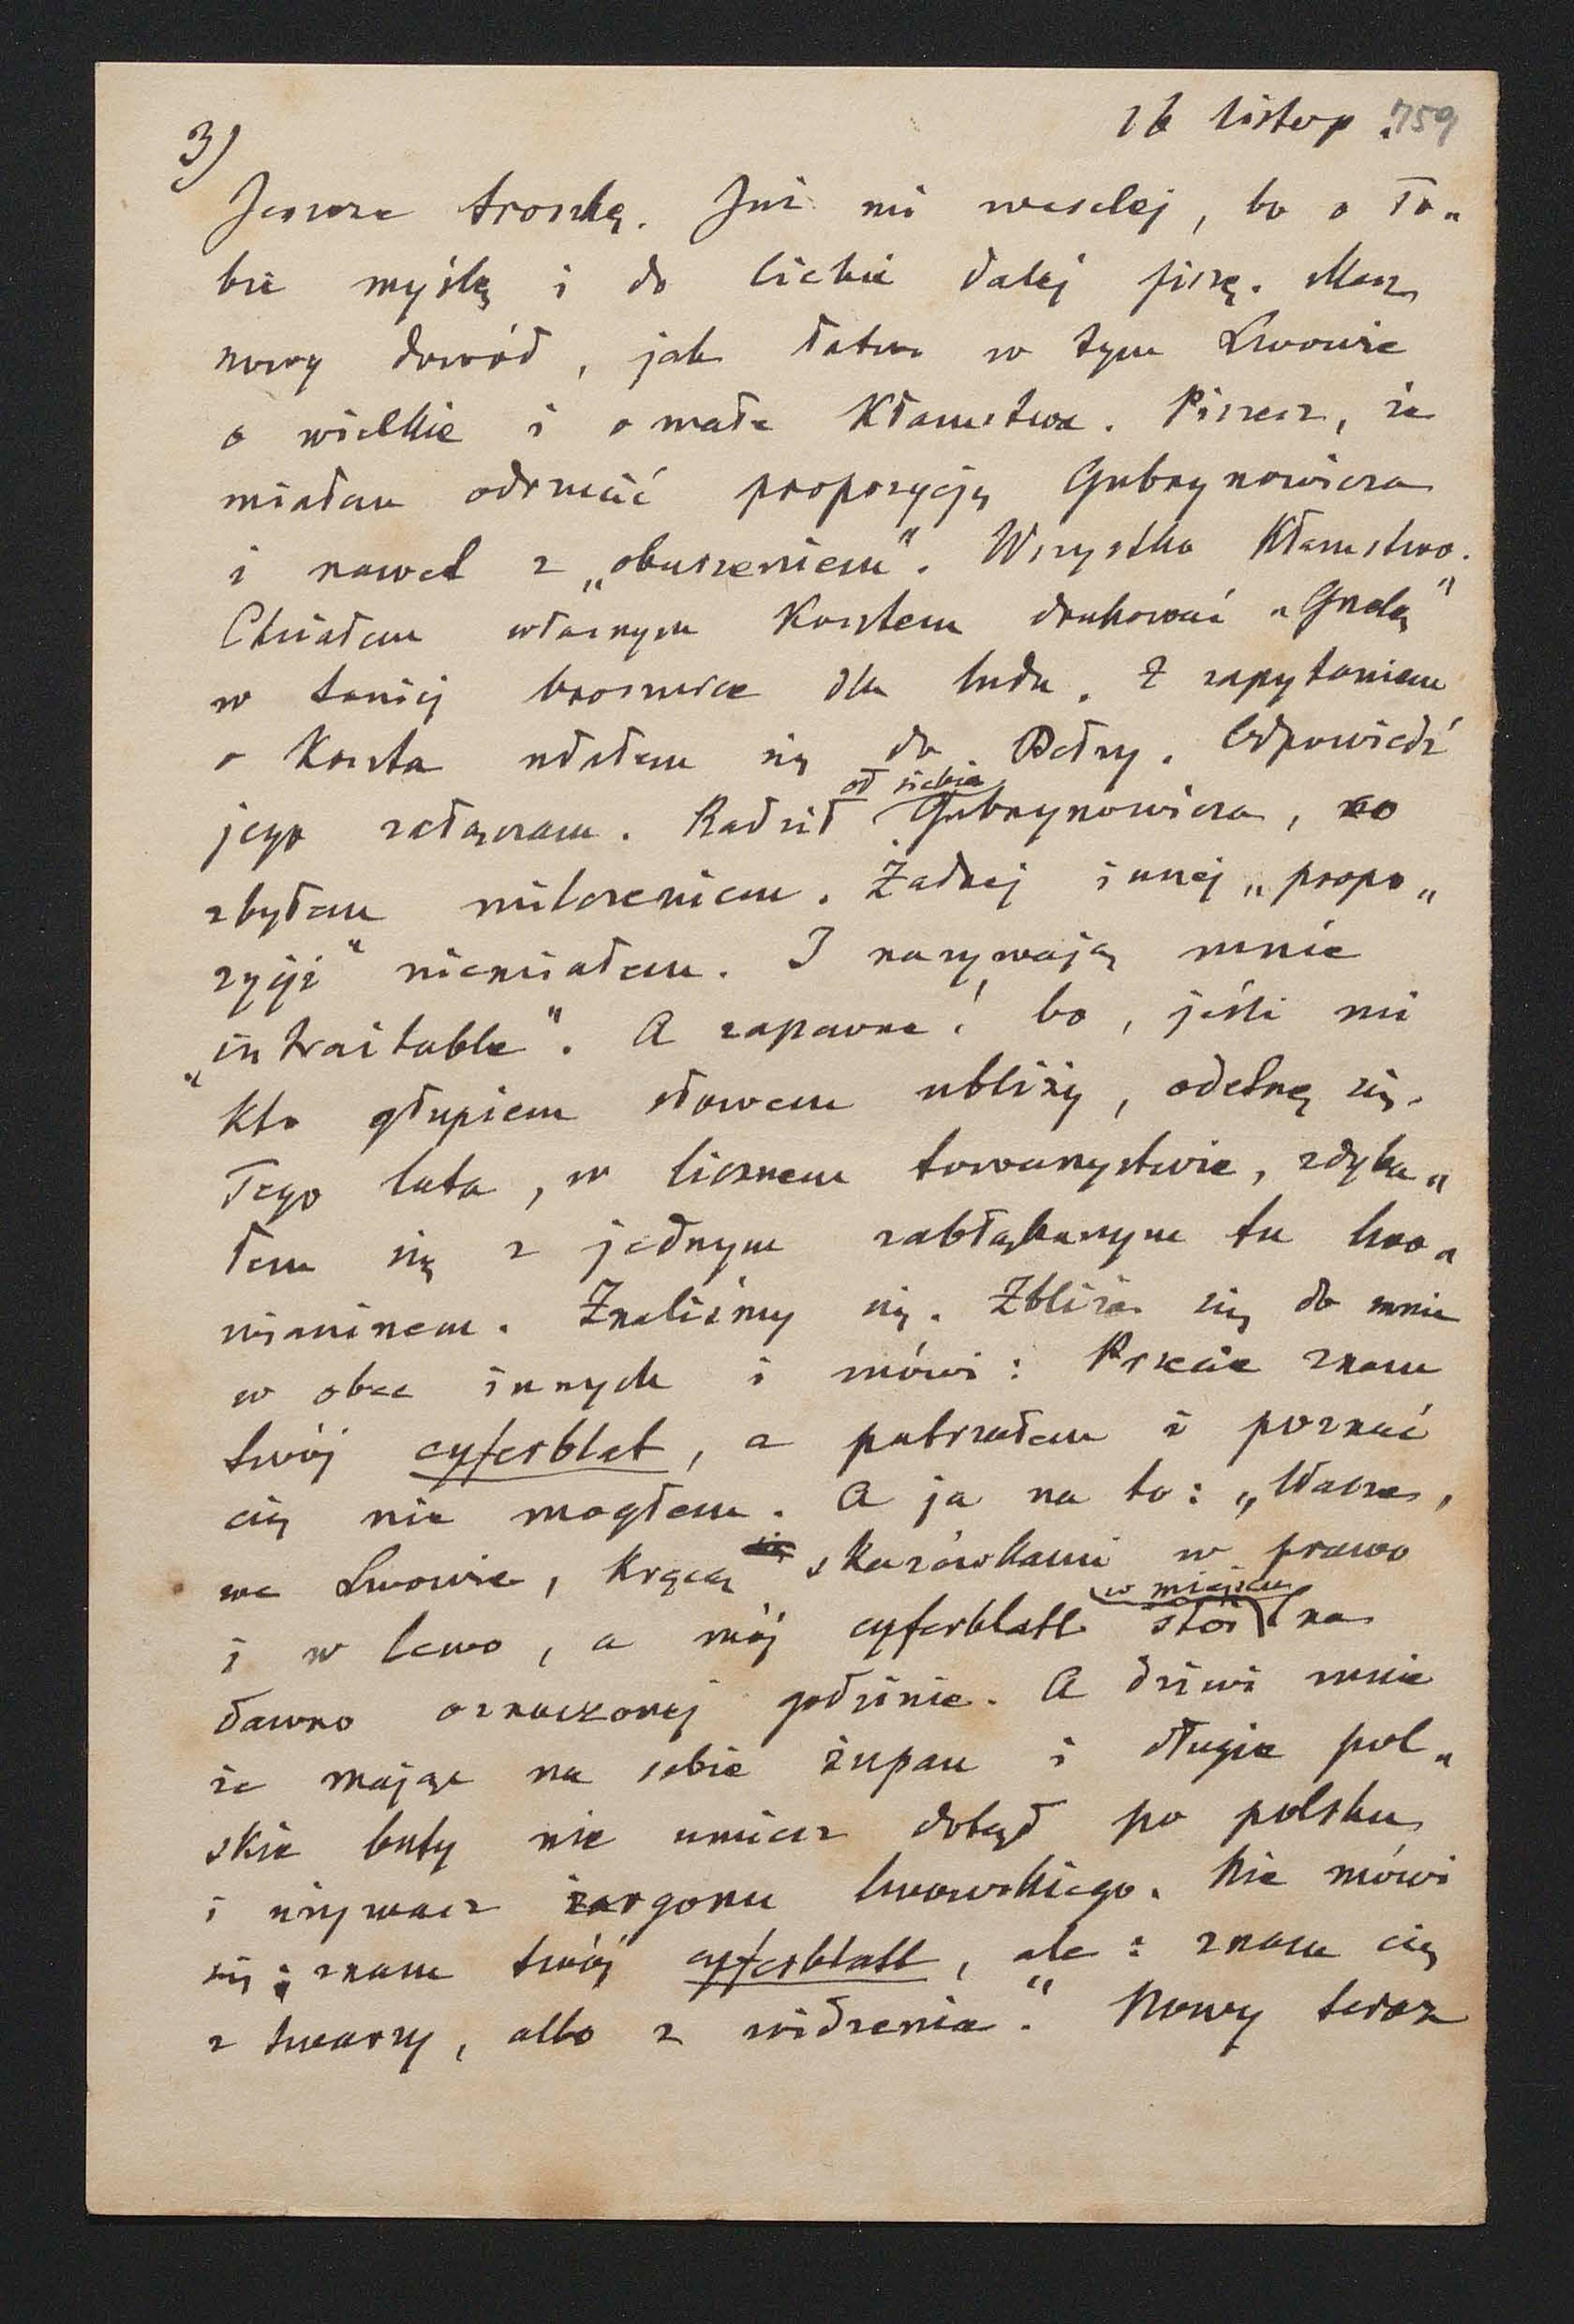 3)
16 listop. 759
Jeszcze troszkę. Już mi weselej, bo o To„
bie myślę i do Ciebie dalej piszę. Masz
nowy dowód, jak łatwo w tym Lwowie
o wielkie i o małe kłamstwa. Piszesz, że
miałem odrzucić propozycję Gubrynowicza
i nawet z „oburzeniem“. Wszystko kłamstwo.
Chciałem własnym kosztem drukować „Gudę“
w taniej broszurce dla ludu. Z zapytaniem
o koszta udałem się do Bełzy. Odpowiedź
od siebie
jego załączam. Radził Gubrynowicza, co
zbyłem milczeniem. Żadnej innej „propo„
zycji“ niemiałem. I nazywają mnie
„intraitable“. A zapewne! bo, jeśli mi
kto głupiem słowem ubliży, odetnę się.
Tego lata, w licznem towarzystwie, zdyba„
łem się z jednym zabłąkanym tu lwo„
wianinem. Znaliśmy się. Zbliża się do mnie
w obec innych i mówi: Przecie znam
twój cyferblat, a patrzałem i poznać
cię nie mogłem. A ja na to: „Wasze,
we Lwowie, kręcą się skazówkami w prawo
w miejscu
i w lewo, a mój cyferblatt stoi na
dawno oznaczonej godzinie. A dziwi mnie
że mając na sobie żupan i długie pol„
skie buty nie umiesz dotąd po polsku
i używasz żargonu lwowskiego. Nie mówi
się: znam twój cyferblatt, ale: znam cię
z twarzy, albo z widzenia.“ Nowy teraz